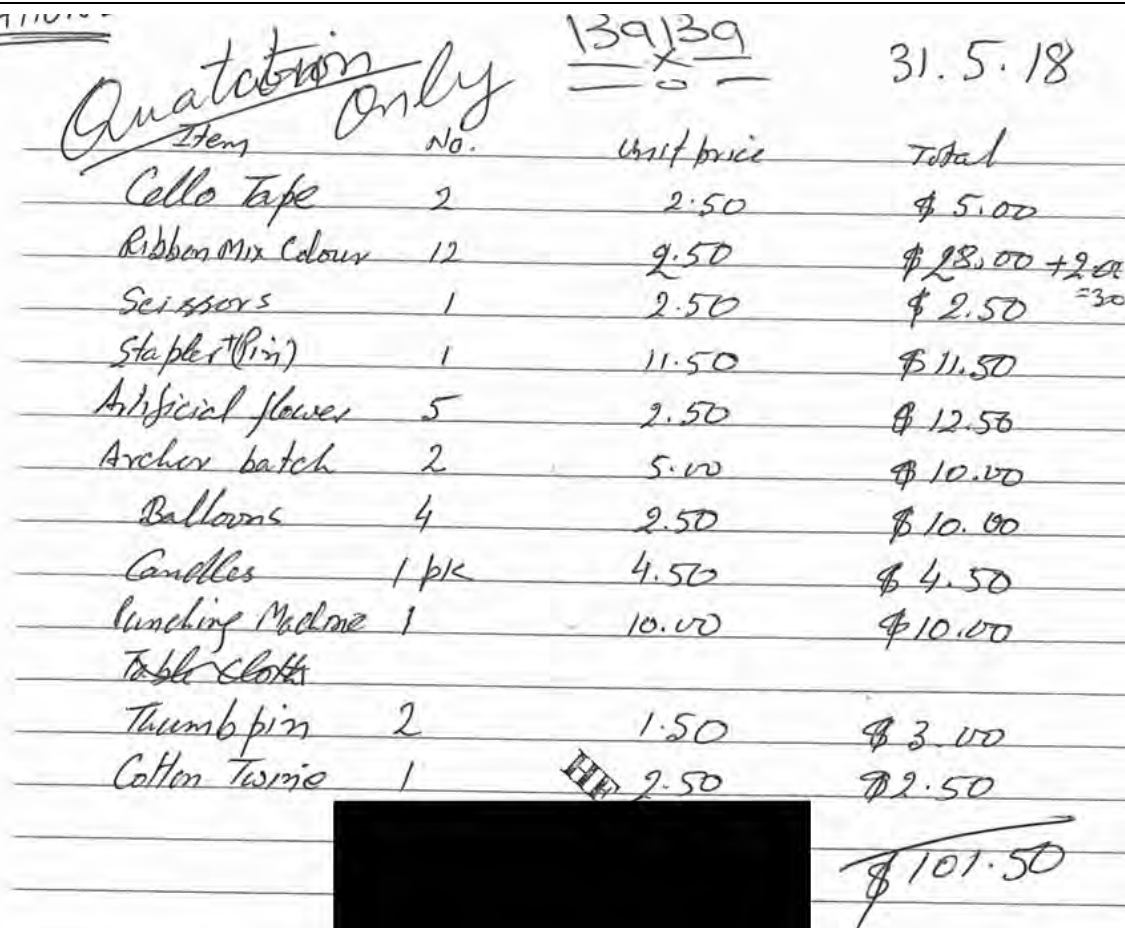 Quatation Only
139139
31.5.18
Item No. Unit price Total
Cello Tape 2 2.50 $ 5.00
Ribbon Mix Colour 12 2.50 $ 28.00 +2.00
=30
Scissors 1 2.50 $ 2.50
Stapler+(Pin) 1 11.50 $ 11.50
Artificial flower 5 2.50 $ 12.50
Archer batch 2 5.00 $ 10.00
Balloons 4 2.50 $ 10.00
Candles 1 pk 4.50 $ 4.50
Punching Machine 1 10.00 $ 10.00
Table Cloth
Thumb pin 2 1.50 $ 3.00
Cotton Twine 1 2.50 $2.50
$ 101.50